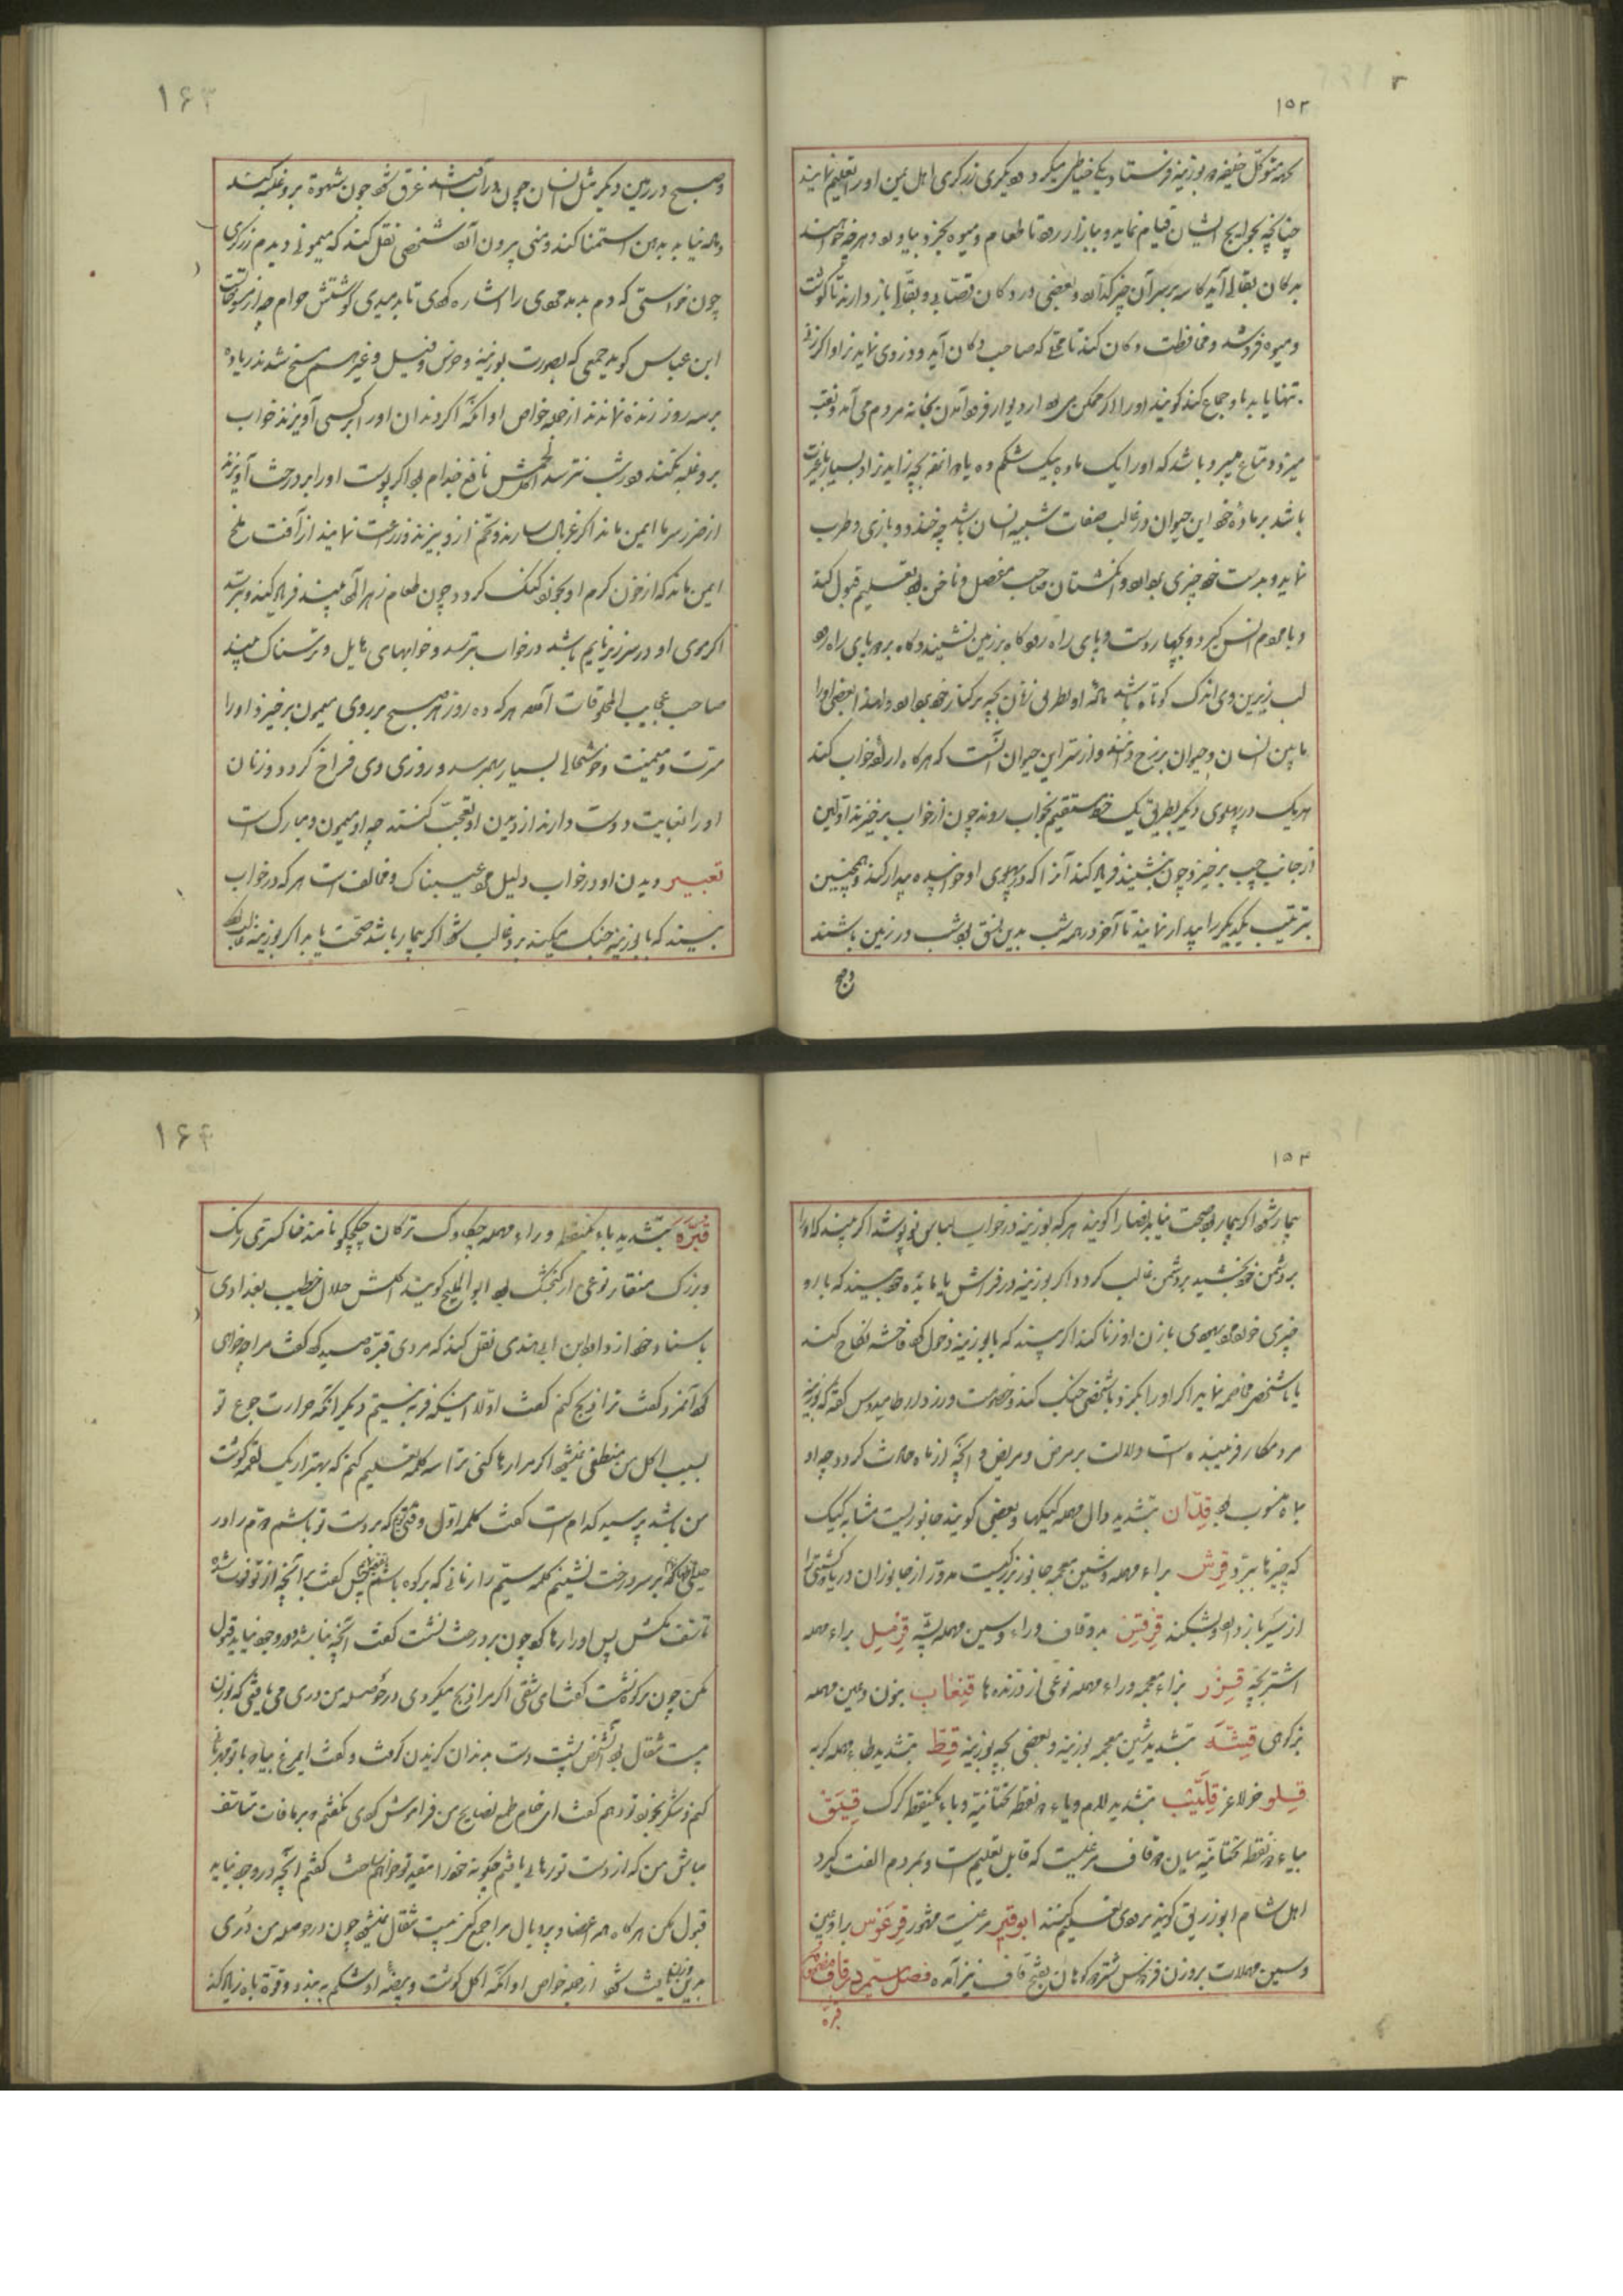 ۱۵۲
متوکل خلیفه دو بوزینه فرستاد یکی خیاطی میکرد و دیگری زرگری اهل یمن او را تعلیم نمایند
چنانچه بحوایج ایشان قیام نماید و ببازار رود تا طعام و میوه بخرد و بیاورد و هرچه خواهند
بدکان بقال آید کاسه بر سر آن چیز و بعضی در دکان قصابی و بقالی باز دارند تا گوشت
و میوه فروشد و محافظت دکان کند تا محلی که صاحب دکان آید و دزدی نماید
تنها یابد با او جماع کند گویند او را از دیوار فرود آمدن بخانه مردم می آمد
میرد و متابع میر و باشد که او را یک ماده بیک شکم ده یا دوازده بچه زاید نر او بسیار با غیرت
باشد بر ماده خود این حیوان در غالب صفات شبیه انسان باشد چه خندد و بازی و طرب
نماید و بدست خود چیزی بردارد و انگشتان صاحب مفصل و ناخن بود تعلیم قبول کند
و با مردم انس گیرد و بچهار دست و پای راه رود گاه بر زمین نشیند و گاه بر دو پای راه رود
لب زیرین وی اندک کوتاه باشد ماده او بطریق زنان بچه بر کنار خود بردارد و لهذا بعضی او را
مابین انسان و حیوان برزخ دانند و از سر این حیوان آنست که هرگاه اراده خواب کند
هر یک در پهلوی دیگر بطریق یک خط مستقیم بخواب روند چون از خواب برخیزند اولین
از جانب چپ برخیزد چون بنشیند فریاد کند آنرا که در پهلوی او خوابیده بیدار کند و همچنین
بترتیب یکدیگر را بیدار نمایند تا آخر در همه شب بدین نسق بود شب در زمین باشند
وصبح
۱۶۳
وصبح در زمین دیگر مثل انسان چون در آب افتد غرق شود چون شهوت برو غلبه کند
و ماده نیابد بدهن استمنا کند و منی بیرون آید شخصی نقل کند که میمونی دیدم زرگری
چون خواستی که دم بدمد وی را اشاره کردی تا بدمیدی گوشتش حرام چه از مسوخاتست
ابن عباس گوید جمعی که بصورت بوزینه و خرس و فیل و غیرهم مسخ شدند زیاده
بر سه روز زنده نماندند از جمله خواص او آنکه اگر دندان او را بر کسی آویزند خواب
برو غلبه نکند و در شب نترسد اکل لحمش نافع جذام بود اگر پوست او را بر درخت آویزند
از ضرر سرما ایمن ماند اگر غربال سازند و تخم ازو بیزند و زراعت نمایند از آفت ملخ
ایمن ماند که از خون گرم او بخورد گنگ گردد چون طعام زهرآلود بیند فریاد کند و بترسد
اگر موی او در سر زیر نایم باشد در خواب بترسد و خوابهای هایل و ترسناک بیند
صاحب عجایب المخلوقات آورده هرکه ده روز هر صبح بر روی میمون برخیزد او را
مسرت و میمنت و خوشحالی بسیار بهم رسد و روزی وی فراخ گردد و زنان
او را بغایت دوست دارند از دیدن او تعجب کنند چه او میمون و مبارک است
تعبیر دیدن او در خواب دلیل مرد عیبناک و مخالف است هرکه در خواب
بیند که با بوزینه جنگ میکند برو غالب شود اگر بیمار باشد صحت یابد اگر بوزینه غالب
۱۵۳
بیمار شود اگر بیمار بود صحت نیابد نصارا گویند هرکه بوزینه در خواب لباس نو پوشد اگر بیند که او را
بدشمن خود بخشید بر دشمن غالب گردد اگر بوزینه در فراش یا مائده خود بیند که با او
چیزی خورد مرد یهودی با زن او زنا کند اگر بیند که با بوزینه دخول کرد فاحشه نکاح کند
یا با شخصی مخاصمه نماید اگر او را بگزد با شخصی جنگ کند و خصومت ورزد ارطامیدوس گفته که بوزینه
مرد مکار فریبنده است و دلالت بر مرض و مریض و آنچه از ماه حادث گردد چه او
بماه منسوب بود قِدّان بتشدید دال مهمله کیکها و بعضی گویند جانوریست مشابه کیک
که چیزها ببرد قِرش براء مهمله و شین معجمه جانور بزرگیست مدور از جانوران دریا کشتی را
از سیر باز دارد و بشکند قِرقِس بدو قاف و راء و سین مهمله پشه قِرمِل براء مهمله
اشتر بچه قِزر بزاء معجمه و راء مهمله نوعی از درنده ها قِنعاب بنون و عین مهمله
بز کوهی قِشّه بتشدید شین معجمه بوزینه و بعضی بچه بوزینه قِطّ بتشدید طاء مهمله گربه
قِلو خر لاغر قِلَّیب بتشدید لام و یاء دو نقطه تحتانیه و باء یکنقطه گرگ قِیَق
بیاء دو نقطه تحتانیه میان دو قاف مرغیست که قابل تعلیم است و بمردم الفت گیرد
اهل شام ابو زریق گویند مردی تعلیم کند ابوقیر مرغیست مشهور قِرعَوس براء و عین
و سین مهملات بروزن فردوس شتر دو کوهان بفتح قاف نیز آمده فصل سیم در قاف مضموم
قبره
۱۶۴
قُبَّرَه بتشدید باء یکنقطه و راء مهمله چکاوک ترکان چکچکو نامند خاکستری رنگ
و بزرگ منقار نوعی از گنجشک بود ابو الملیح گویند اکلش حلال خطیب بغدادی
باسناد خود از داود بن ابی هندی نقل کند که مردی قبره صید کرد گفت مرا چه خواهی
کرد آنمرد گفت ترا ذبح کنم گفت اولا اینکه فربه نیستم دیگر آنکه حرارت جوع تو
بسبب اکل من منطفی نمیشود اگر مرا رها کنی ترا سه کلمه تعلیم کنم که بهتر از یک لقمه گوشت
من باشد پرسید کدام است گفت کلمه اول وقتی گویم که بر دست تو باشم دوم را در
حینی که بر سر درخت نشینم کلمه سیم را زمانی که بر کوه باشم گفت بر آنچه از تو فوت شده
تاسف مکش پس او را رها کرد چون بر درخت نشست گفت آنچه نباشد و در وجود نیاید قبول
مکن چون بر کوه نشست گفت ای شقی اگر مرا ذبح میکردی در حوصله من دری می یافتی که بوزن
بیست مثقال بود آن شخص پشت دست بدندان گزیدن گرفت و گفت ای مرغ بیا با تو مهربانی
کنم و شکر بخورد تو دهم گفت ای خام طمع نصایح من فراموش کردی نگفتم بر مافات متاسف
مباش من که از دست تو رهایی یافتم چگونه خود را مقید تو خواهم ساخت گفتم آنچه در وجود نیاید
قبول مکن هرگاه همه اعضا و پر و بال مرا جمع کنی بیست مثقال نمیشود چون در حوصله من دری
بدین وزن یافت شود از جمله خواص او آنکه اکل گوشت و بیضه او شکم ببندد و قوة باه زیاد کند